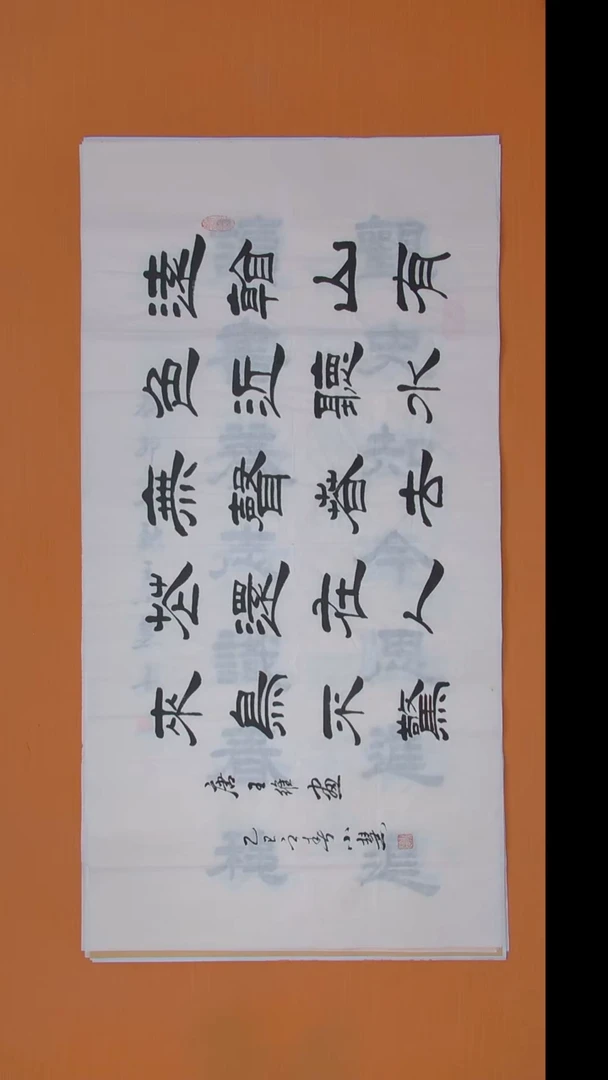 遠看山有
色近聽水
無聲春去
花還在人
來鳥不驚
唐王維畫
乙巳春小慧